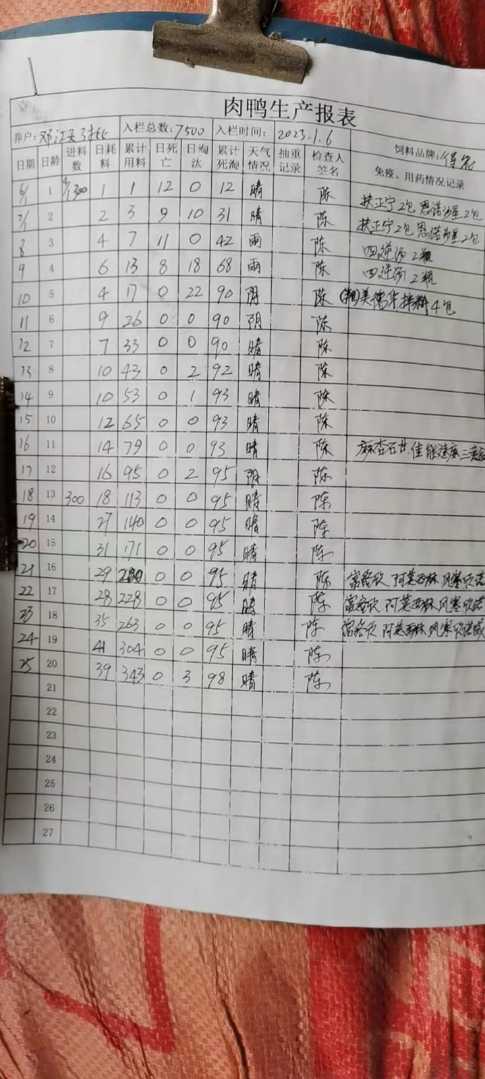 肉鸭生产报表
户: 入栏总数:7500 入栏时间: 2023.1.6 饲料品牌:
日期 日龄 进料数 日耗料 累计用料 日死亡 日淘汰 累计死淘 天气情况 抽重记录 检查人签名 免疫、用药情况记录
6/1 1 300 1 1 12 0 12 晴 陈 扶正宁2包 2包
7/1 2 2 3 9 10 31 晴 陈 扶正宁2包 2包
8 3 4 7 11 0 42 雨 陈 四逆汤2瓶
9 4 6 13 8 18 68 雨 陈 四逆汤2瓶
10 5 4 17 0 22 90 阴 陈 拌料4包
11 6 9 26 0 0 90 阴 陈
12 7 7 33 0 0 90 晴 陈
13 8 10 43 0 2 92 晴 陈
14 9 10 53 0 1 93 晴 陈
15 10 12 65 0 0 93 晴 陈
16 11 14 79 0 0 93 晴 陈 麻杏石甘
17 12 16 95 0 2 95 阴 陈
18 13 300 18 113 0 0 95 晴 陈
19 14 27 140 0 0 95 晴 陈
20 15 31 171 0 0 95 晴 陈
21 16 29 200 0 0 95 晴 陈 阿莫西林
22 17 28 228 0 0 95 晴 陈 阿莫西林
23 18 35 263 0 0 95 晴 陈 阿莫西林
24 19 41 304 0 0 95 晴 陈
25 20 39 343 0 3 98 晴 陈
21
22
23
24
25
26
27